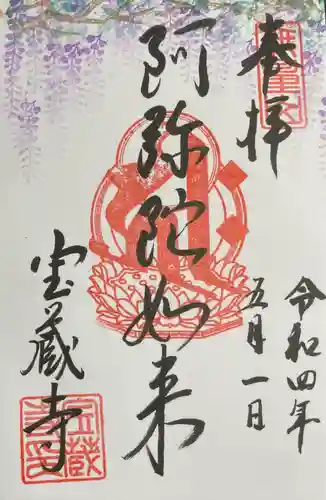 奉拝
令和四年
五月一日
阿弥陀如来
宝蔵寺